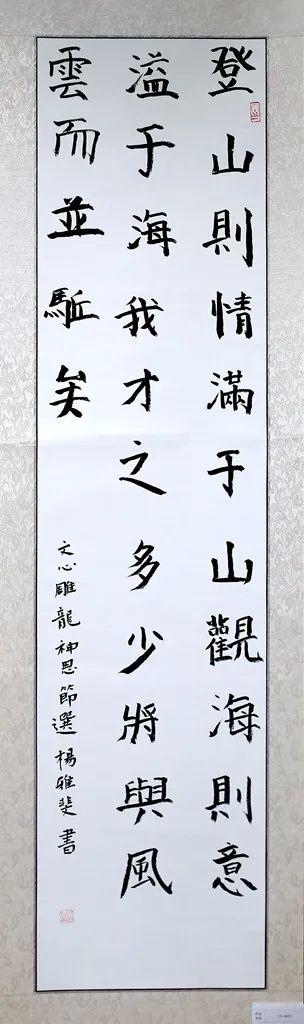 登山則情滿于山觀海則意
溢于海我才之多少將與風
雲而並駈矣
文心雕龍神思節選楊雅斐書